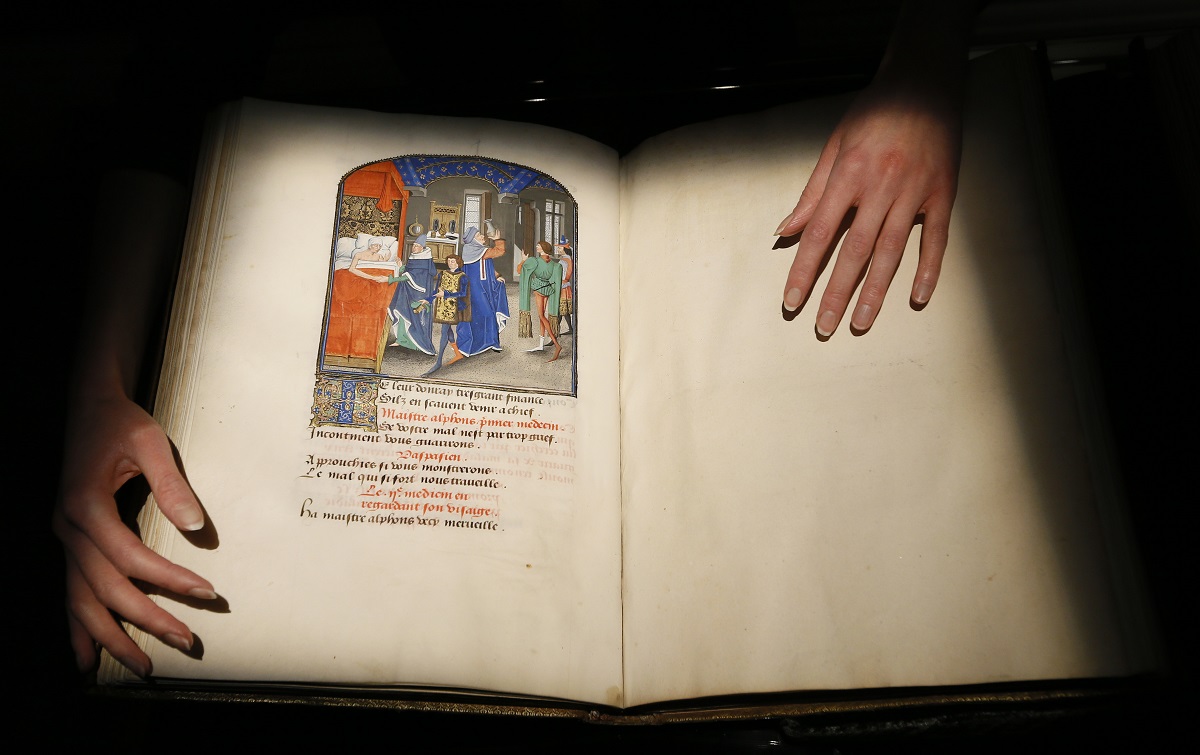 Et leur donray tresgrant finance
Silz en scauent venir a chief.
Maistre alphons p̄mier medecin
Se vostre mal nest par trop grief.
Incontinent vous guarirons.
Vaspasien.
Approuchies si vous monstrerons
Le mal qui si fort nous traveille.
Le ije medicin en
regardant son visaige.
Ha maistre alphons vecy merveille.